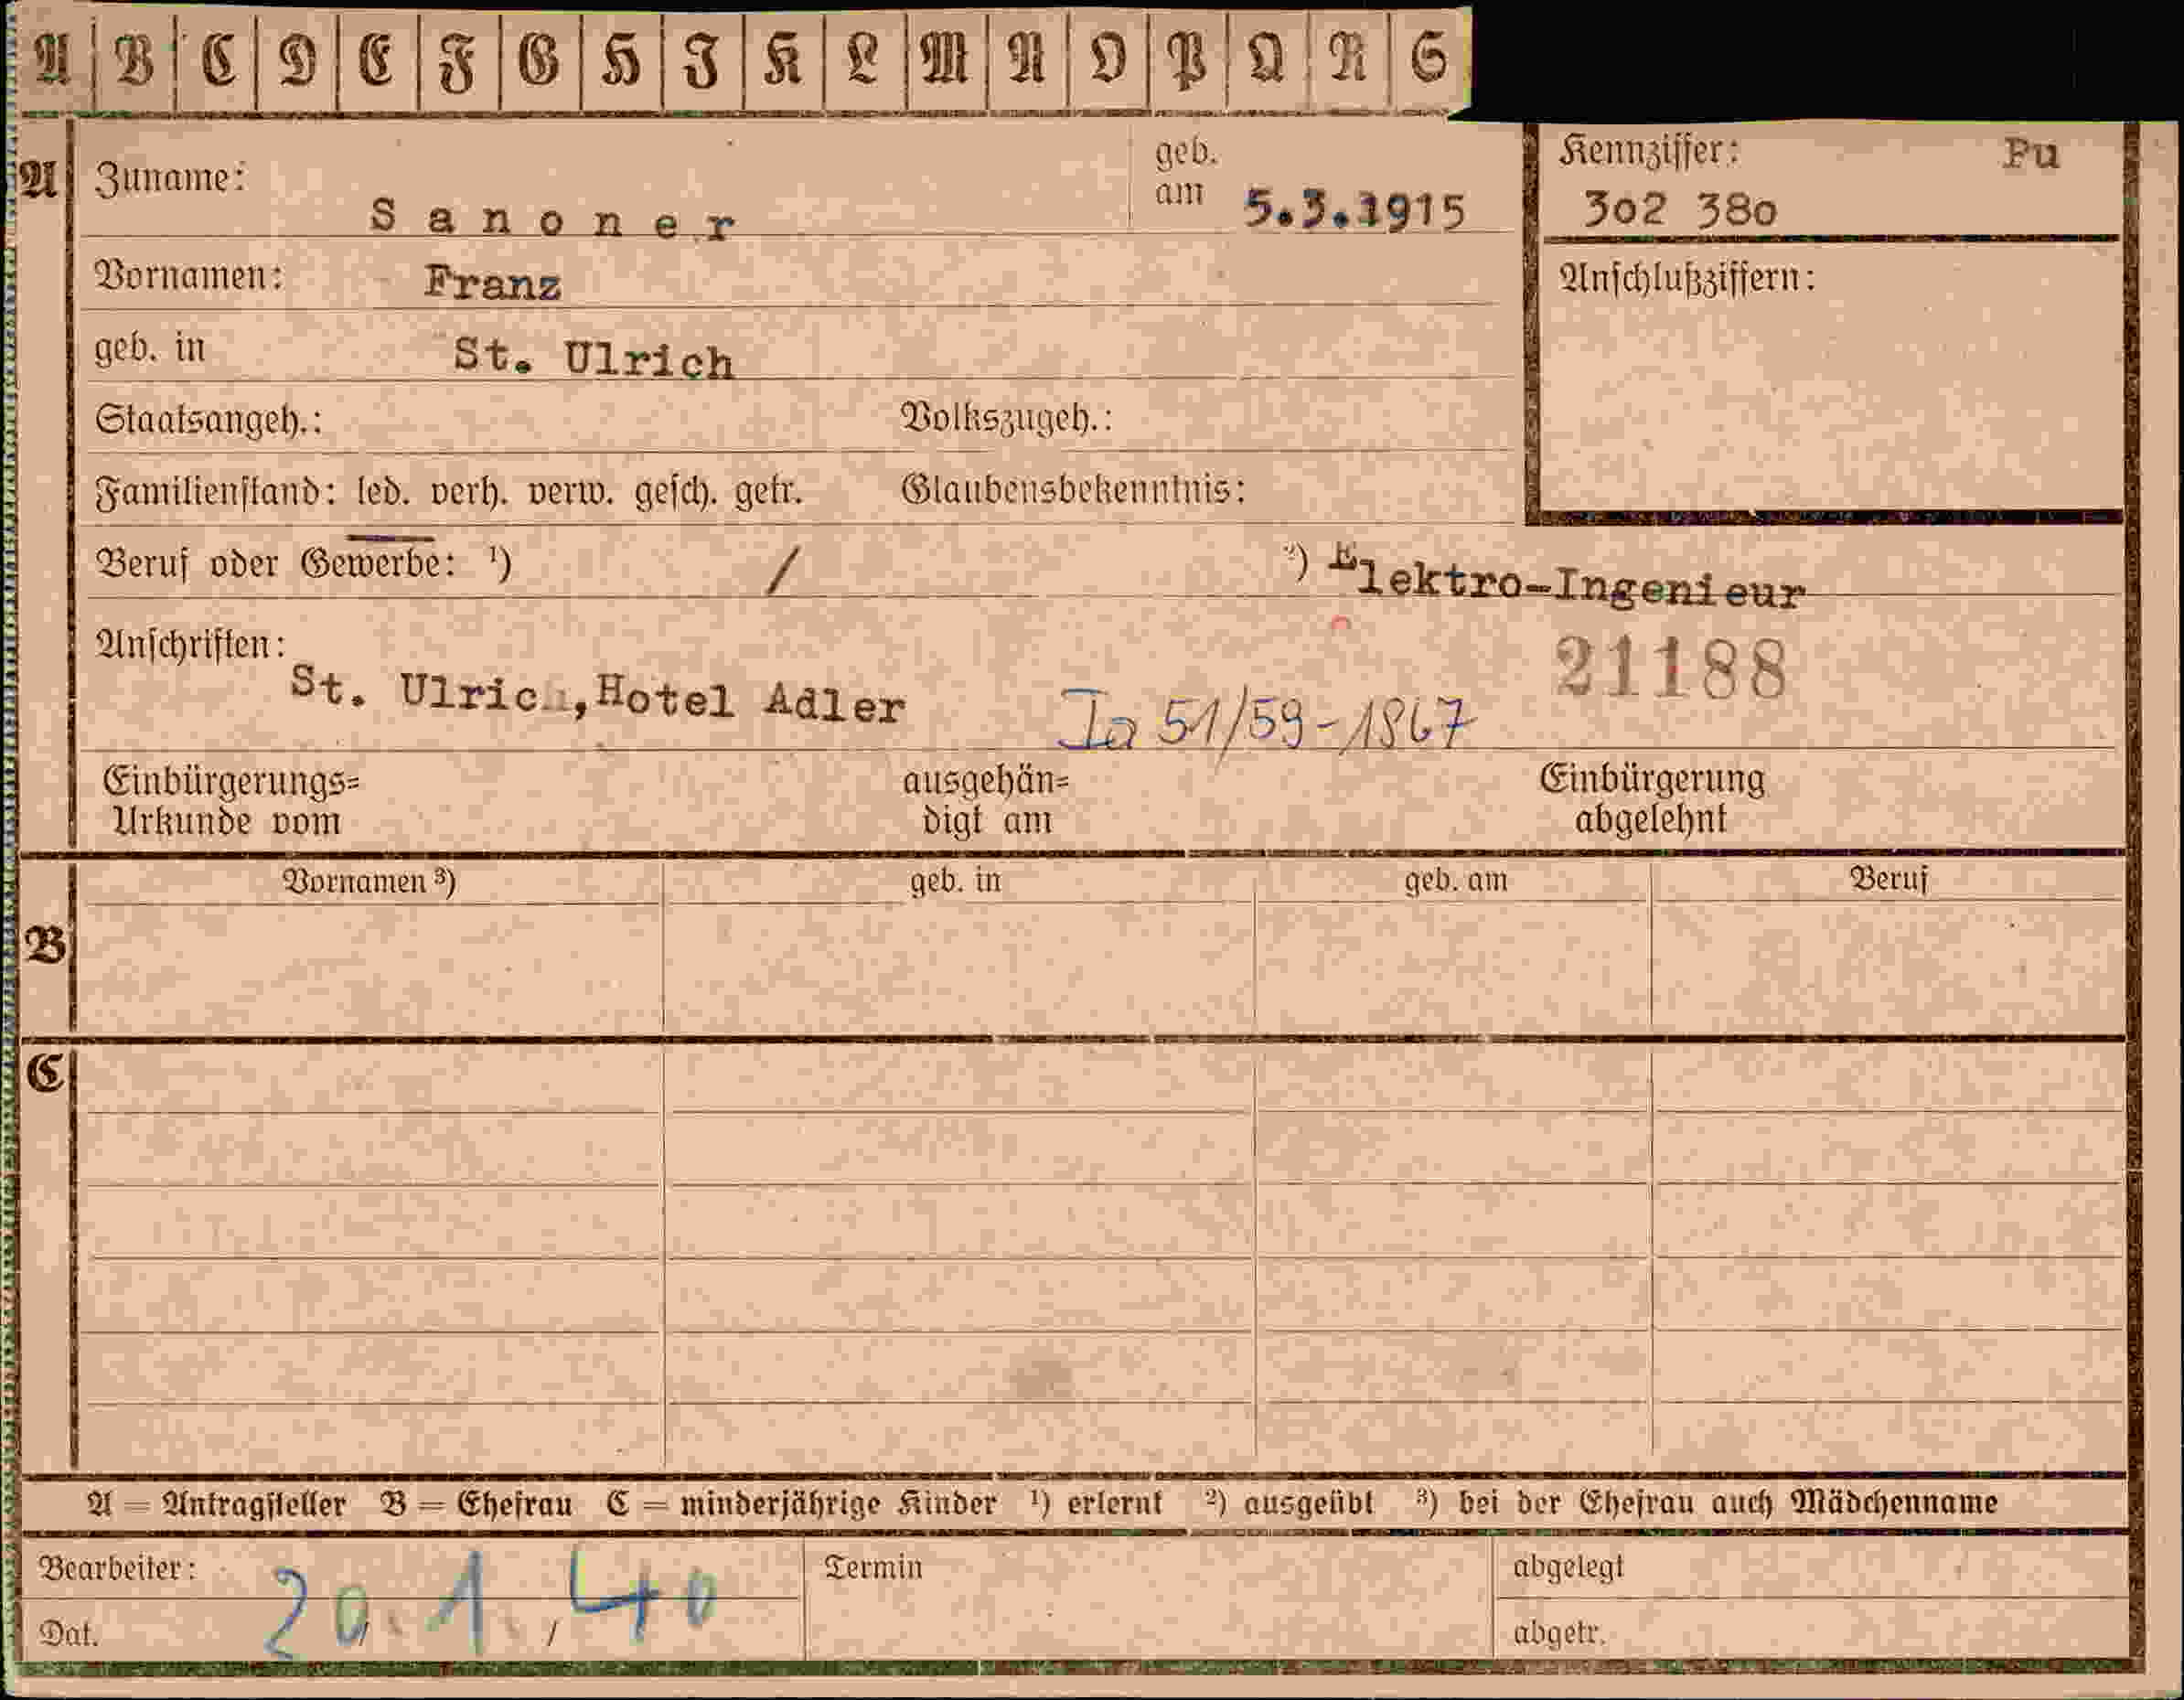 A B C D E F G H J K L M N O P Q R S
A Zuname: S a n o n e r geb. am 5.3.1915
Kennziffer: Pu
302 380
Vornamen: Franz
Anschlußziffern:
geb. in St. Ulrich
Staatsangeh.: Volkszugeh.:
Familienstand: led. verh. verw. gesch. getr. Glaubensbekenntnis:
Beruf oder Gewerbe: ¹) / ²) Elektro-Ingenieur
Anschriften:
21188
St. Ulrich,Hotel Adler Ia 51/59-1867
Einbürgerungs= ausgehän= Einbürgerung
Urkunde vom digt am abgelehnt
Vornamen ³) geb. in geb. am Beruf
B
C
A = Antragsteller B = Ehefrau C = minderjährige Kinder ¹) erlernt ²) ausgeübt ³) bei der Ehefrau auch Mädchenname
Bearbeiter: Termin abgelegt
20.1.40
Dat. / / abgetr.